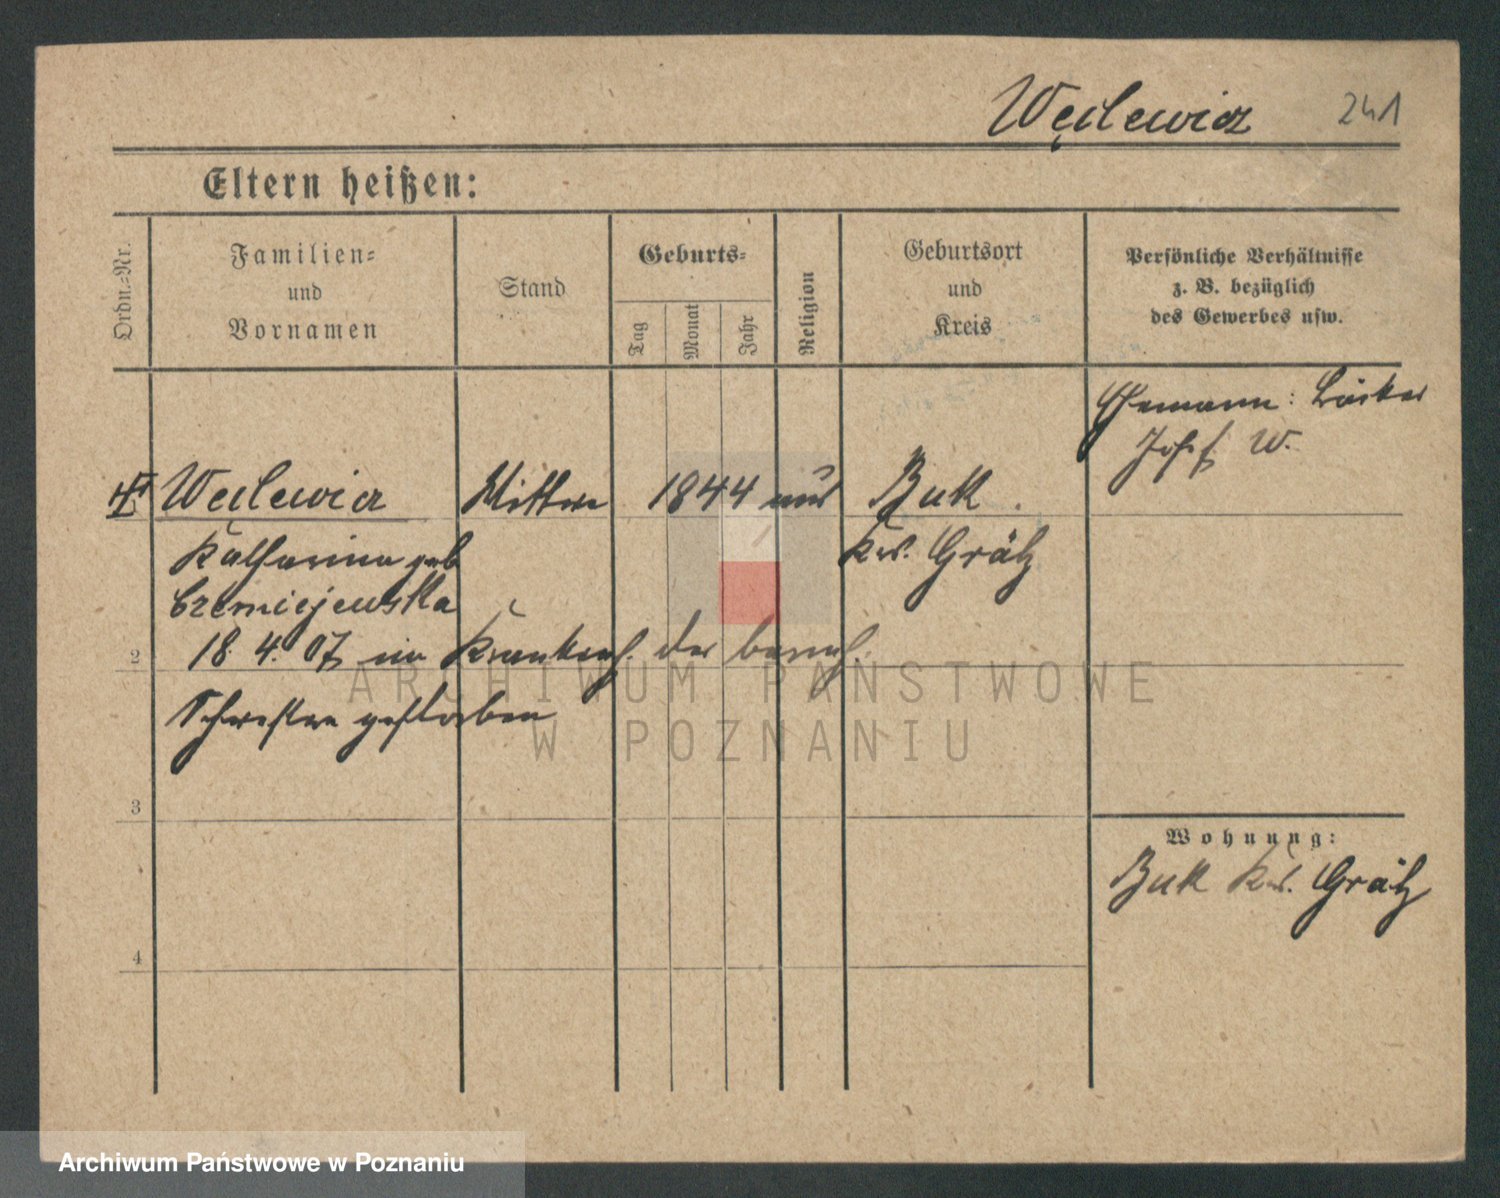 Węclewicz 241
Eltern heißen:
Ordn.-Nr.
Familien-
und
Vornamen
Stand
Geburts-
Tag
Monat
Jahr
Religion
Geburtsort
und
Kreis
Persönliche Verhältnisse
z. B. bezüglich
des Gewerbes usw.
Ehemann: Bäcker
Josef W.
Węclewicz Wittwe 1844 Buk
Katharina geb
Krs. Grätz
18. 4. 07 im Krankenh. der barmh.
2
Schwestern gestorben
3
Wohnung:
Buk Krs. Grätz
4
ARCHIWUM PAŃSTWOWE
W POZNANIU
Archiwum Państwowe w Poznaniu